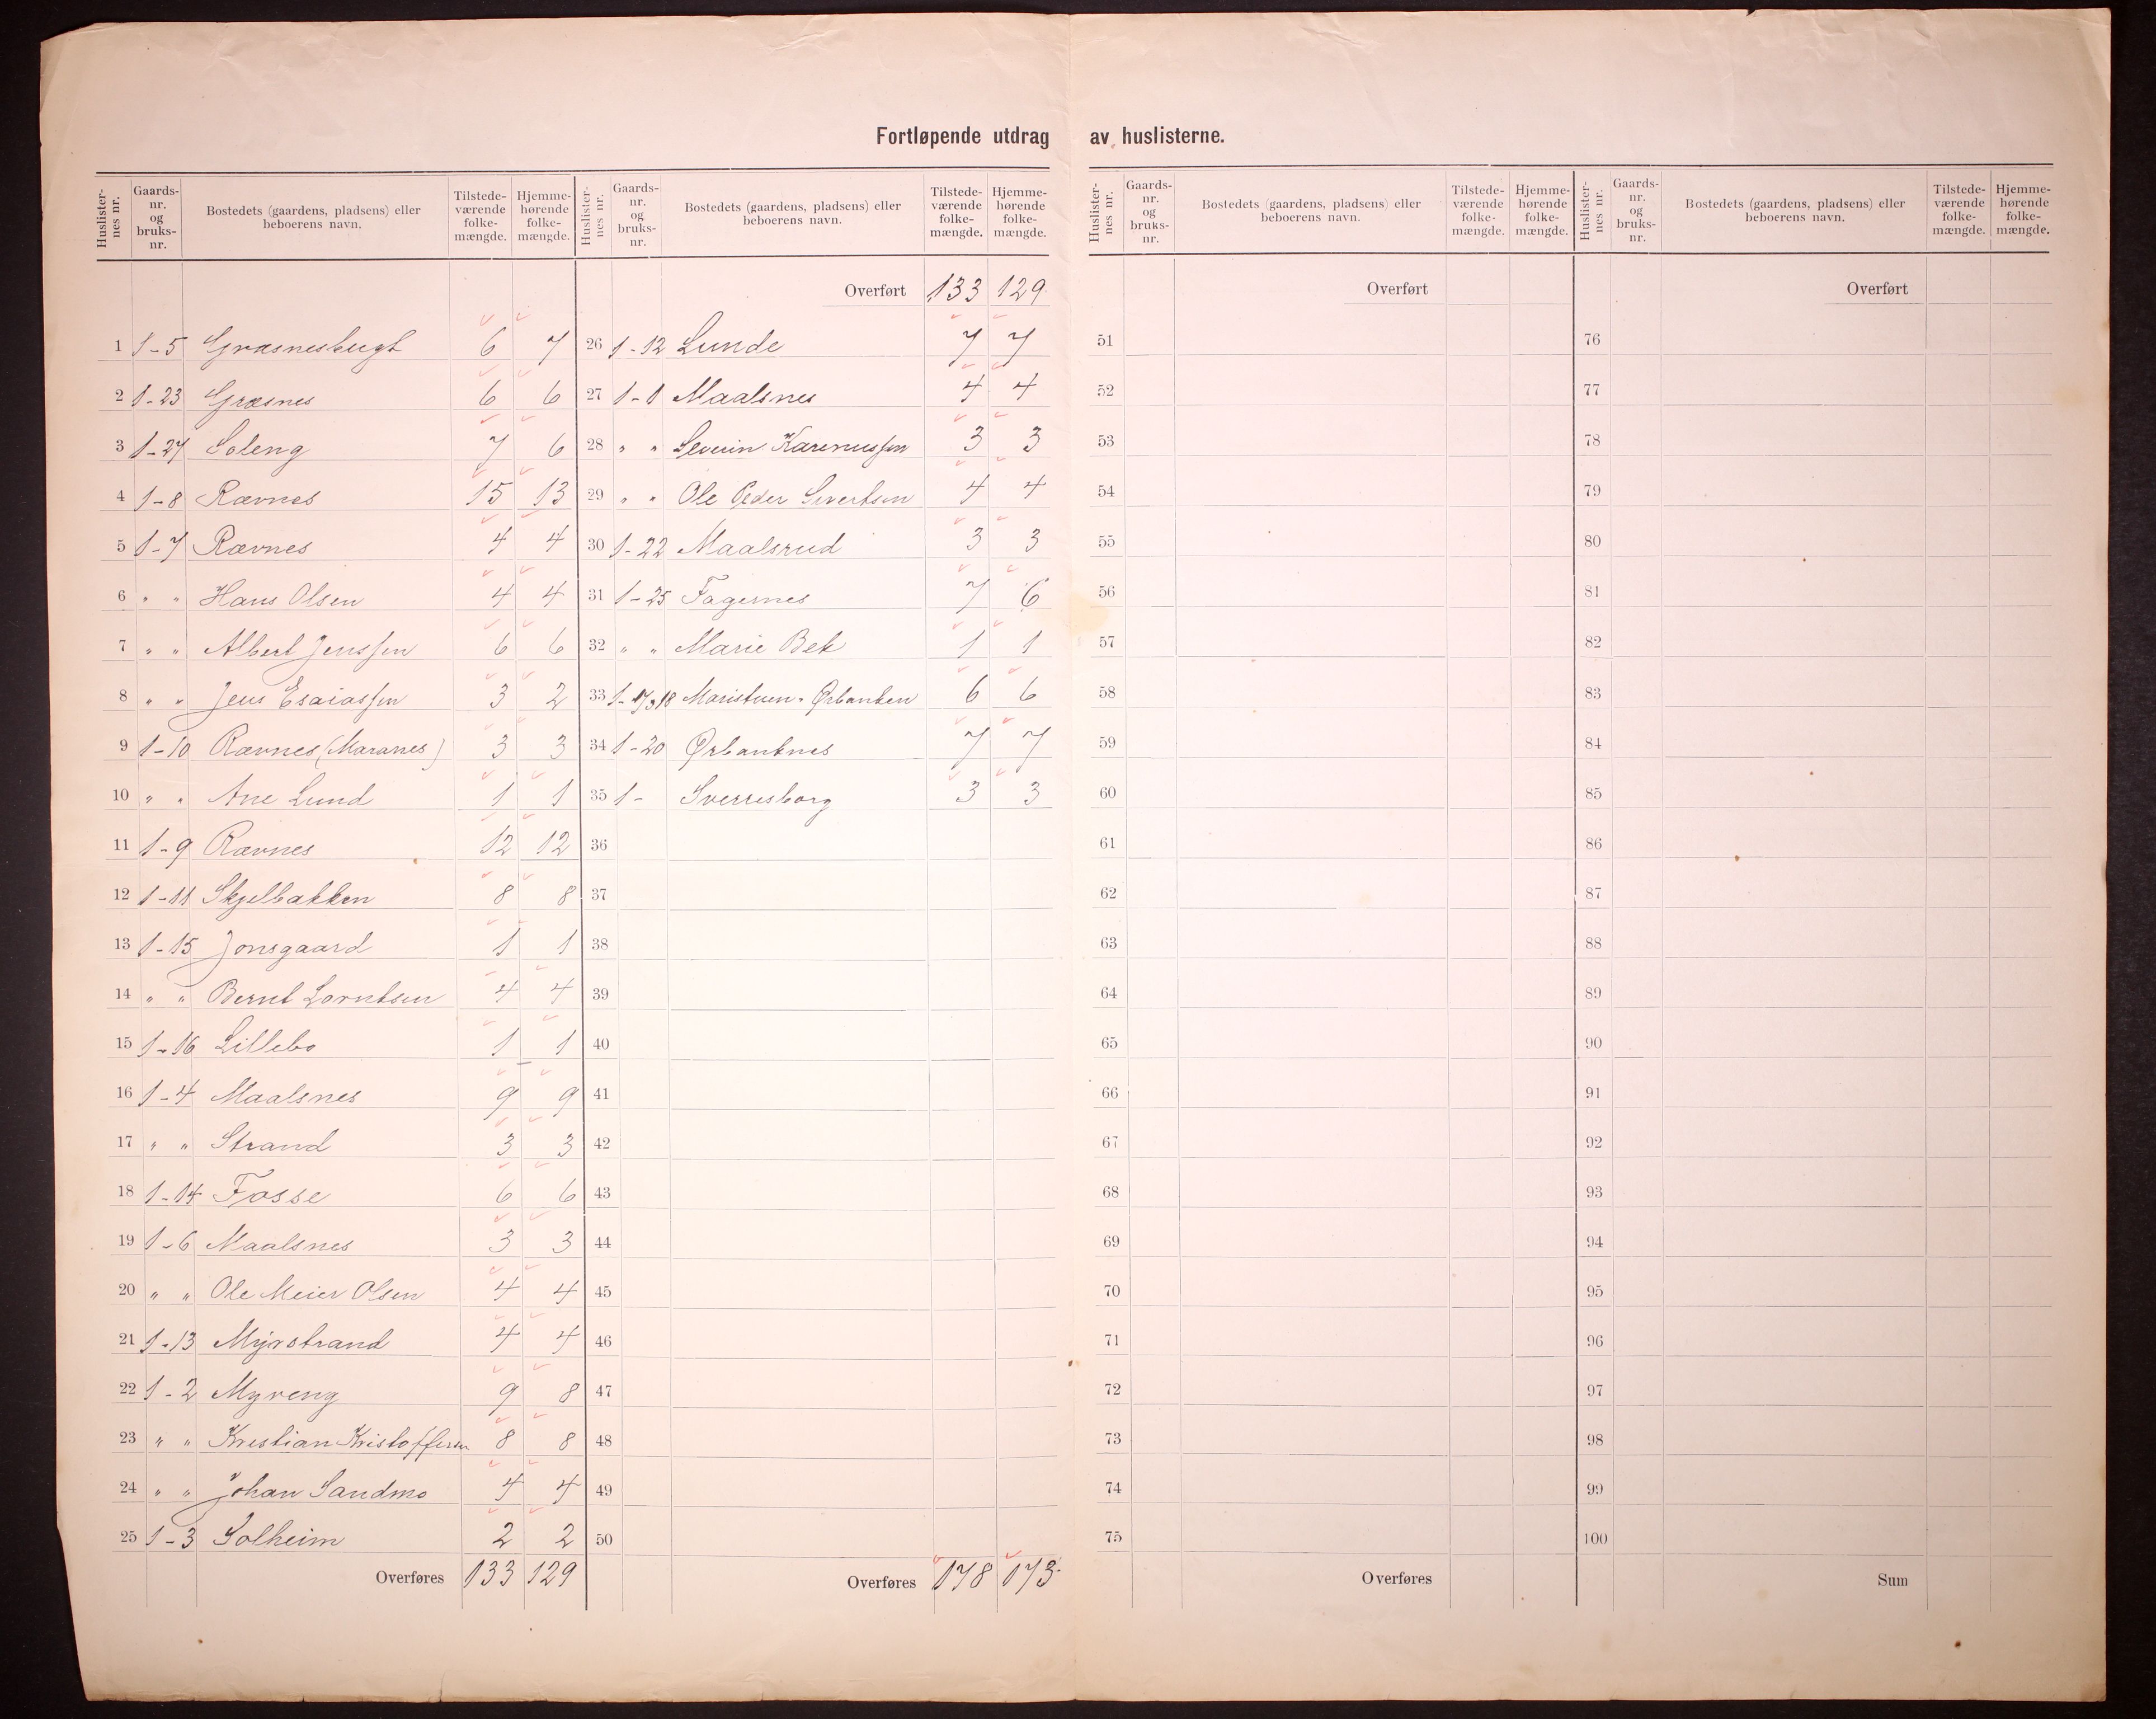 Fortløpende utdrag av huslisterne.
Huslisternes nr. | Gaards-nr. og bruks-nr. | Bostedets (gaardens, pladsens) eller beboerens navn. | Tilstedeværende folkemængde. | Hjemmehørende folkemængde.
1 1-5 Græsnesbugt 6 7
2 1-23 Græsnes 6 6
3 1-27 Soleng 7 6
4 1-8 Rævnes 15 13
5 1-7 Rævnes 4 4
6 " " Hans Olsen 4 4
7 " " Albert Jenssen 6 6
8 " " Jens Esaiassen 3 2
9 1-10 Rævnes (Maranes) 3 3
10 " " Ane Lund 1 1
11 1-9 Rævnes 12 12
12 1-11 Skjelbakken 8 8
13 1-15 Jonsgaard 1 1
14 " " Bernt Lorntsen 4 4
15 1-16 Lillebo 1 1
16 1-4 Maalsnes 9 9
17 " " Strand 3 3
18 1-14 Fosse 6 6
19 1-6 Maalsnes 3 3
20 " " Ole Meier Olsen 4 4
21 1-13 Myrstrand 4 4
22 1-2 Myreng 9 8
23 " " Krestian Kristoffersen 8 8
24 " " Johan Sandmo 4 4
25 1-3 Solheim 2 2
Overføres 133 129
Huslisternes nr. | Gaards-nr. og bruks-nr. | Bostedets (gaardens, pladsens) eller beboerens navn. | Tilstedeværende folkemængde. | Hjemmehørende folkemængde.
Overført 133 129
26 1-12 Lunde 7 7
27 1-1 Maalsnes 4 4
28 " " Severin Karenussen 3 3
29 " " Ole Peder Sivertsen 4 4
30 1-22 Maalsrud 3 3
31 1-25 Fagernes 7 6
32 " " Marie Bek 1 1
33 1-17,18 Maristuen - Ørbanken 6 6
34 1-20 Ørbanknes 7 7
35 1- Sverresborg 3 3
36
37
38
39
40
41
42
43
44
45
46
47
48
49
50
Overføres 178 173
Huslisternes nr. | Gaards-nr. og bruks-nr. | Bostedets (gaardens, pladsens) eller beboerens navn. | Tilstedeværende folkemængde. | Hjemmehørende folkemængde.
Overført
51
52
53
54
55
56
57
58
59
60
61
62
63
64
65
66
67
68
69
70
71
72
73
74
75
Overføres
Huslisternes nr. | Gaards-nr. og bruks-nr. | Bostedets (gaardens, pladsens) eller beboerens navn. | Tilstedeværende folkemængde. | Hjemmehørende folkemængde.
Overført
76
77
78
79
80
81
82
83
84
85
86
87
88
89
90
91
92
93
94
95
96
97
98
99
100
Sum